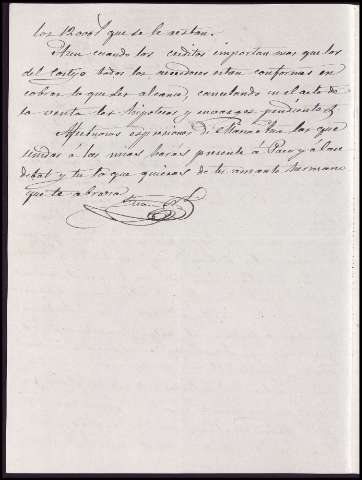 los 12000 que se le restan.
Aun cuando los creditos importan mas que los
del cortijo todos los acreedores estan conformes en
cobrar lo que les alcance, cancelando en el acto de
la venta las hipotecas y embargos pendientes
Afectuosas espresiones de las que
unidas á las mias harás presente á Paco y á
y tu lo que quieras de tu amante hermano
que te abraza